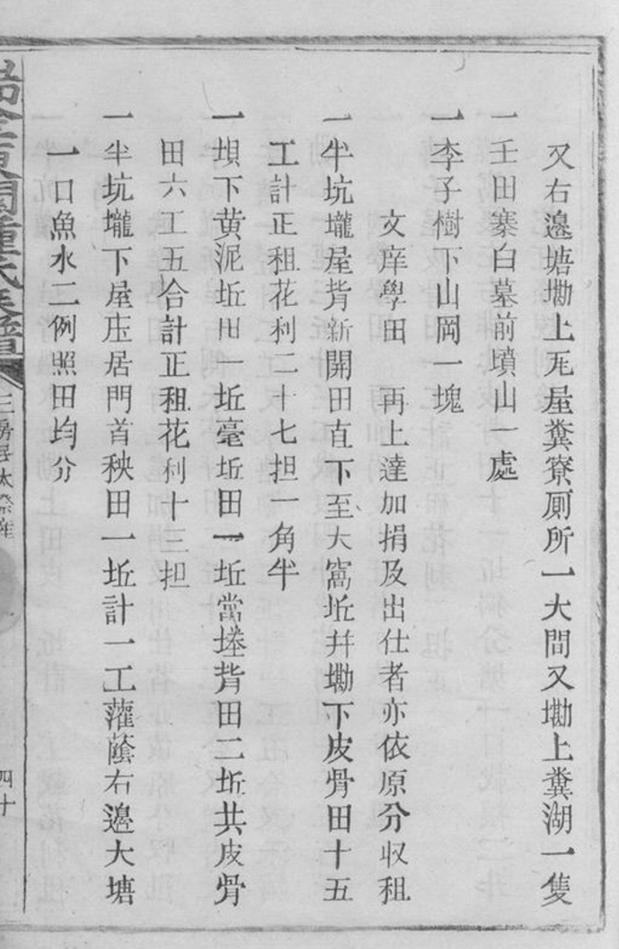 又右邉塘墈上瓦屋糞寮厠所一大間又墈上糞湖一隻
一壬田寨白墓前墳山一處
一李子樹下山岡一塊
文庠學田　再上達加捐及出仕者亦依原分収租
一半坑壠屋背新開田直下至大窩坵幷墈下皮骨田十五
工計正租花利二十七担一角半
一垻下黄泥坵田一坵毫坵田一坵當塟背田二坵共皮骨
田六工五合計正租花利十三担
一半坑壠下屋庒居門首秧田一坵計一工蓷蔭右邉大塘
一口魚水二例照田均分
東關鍾氏族譜
三房長太祭産
四十